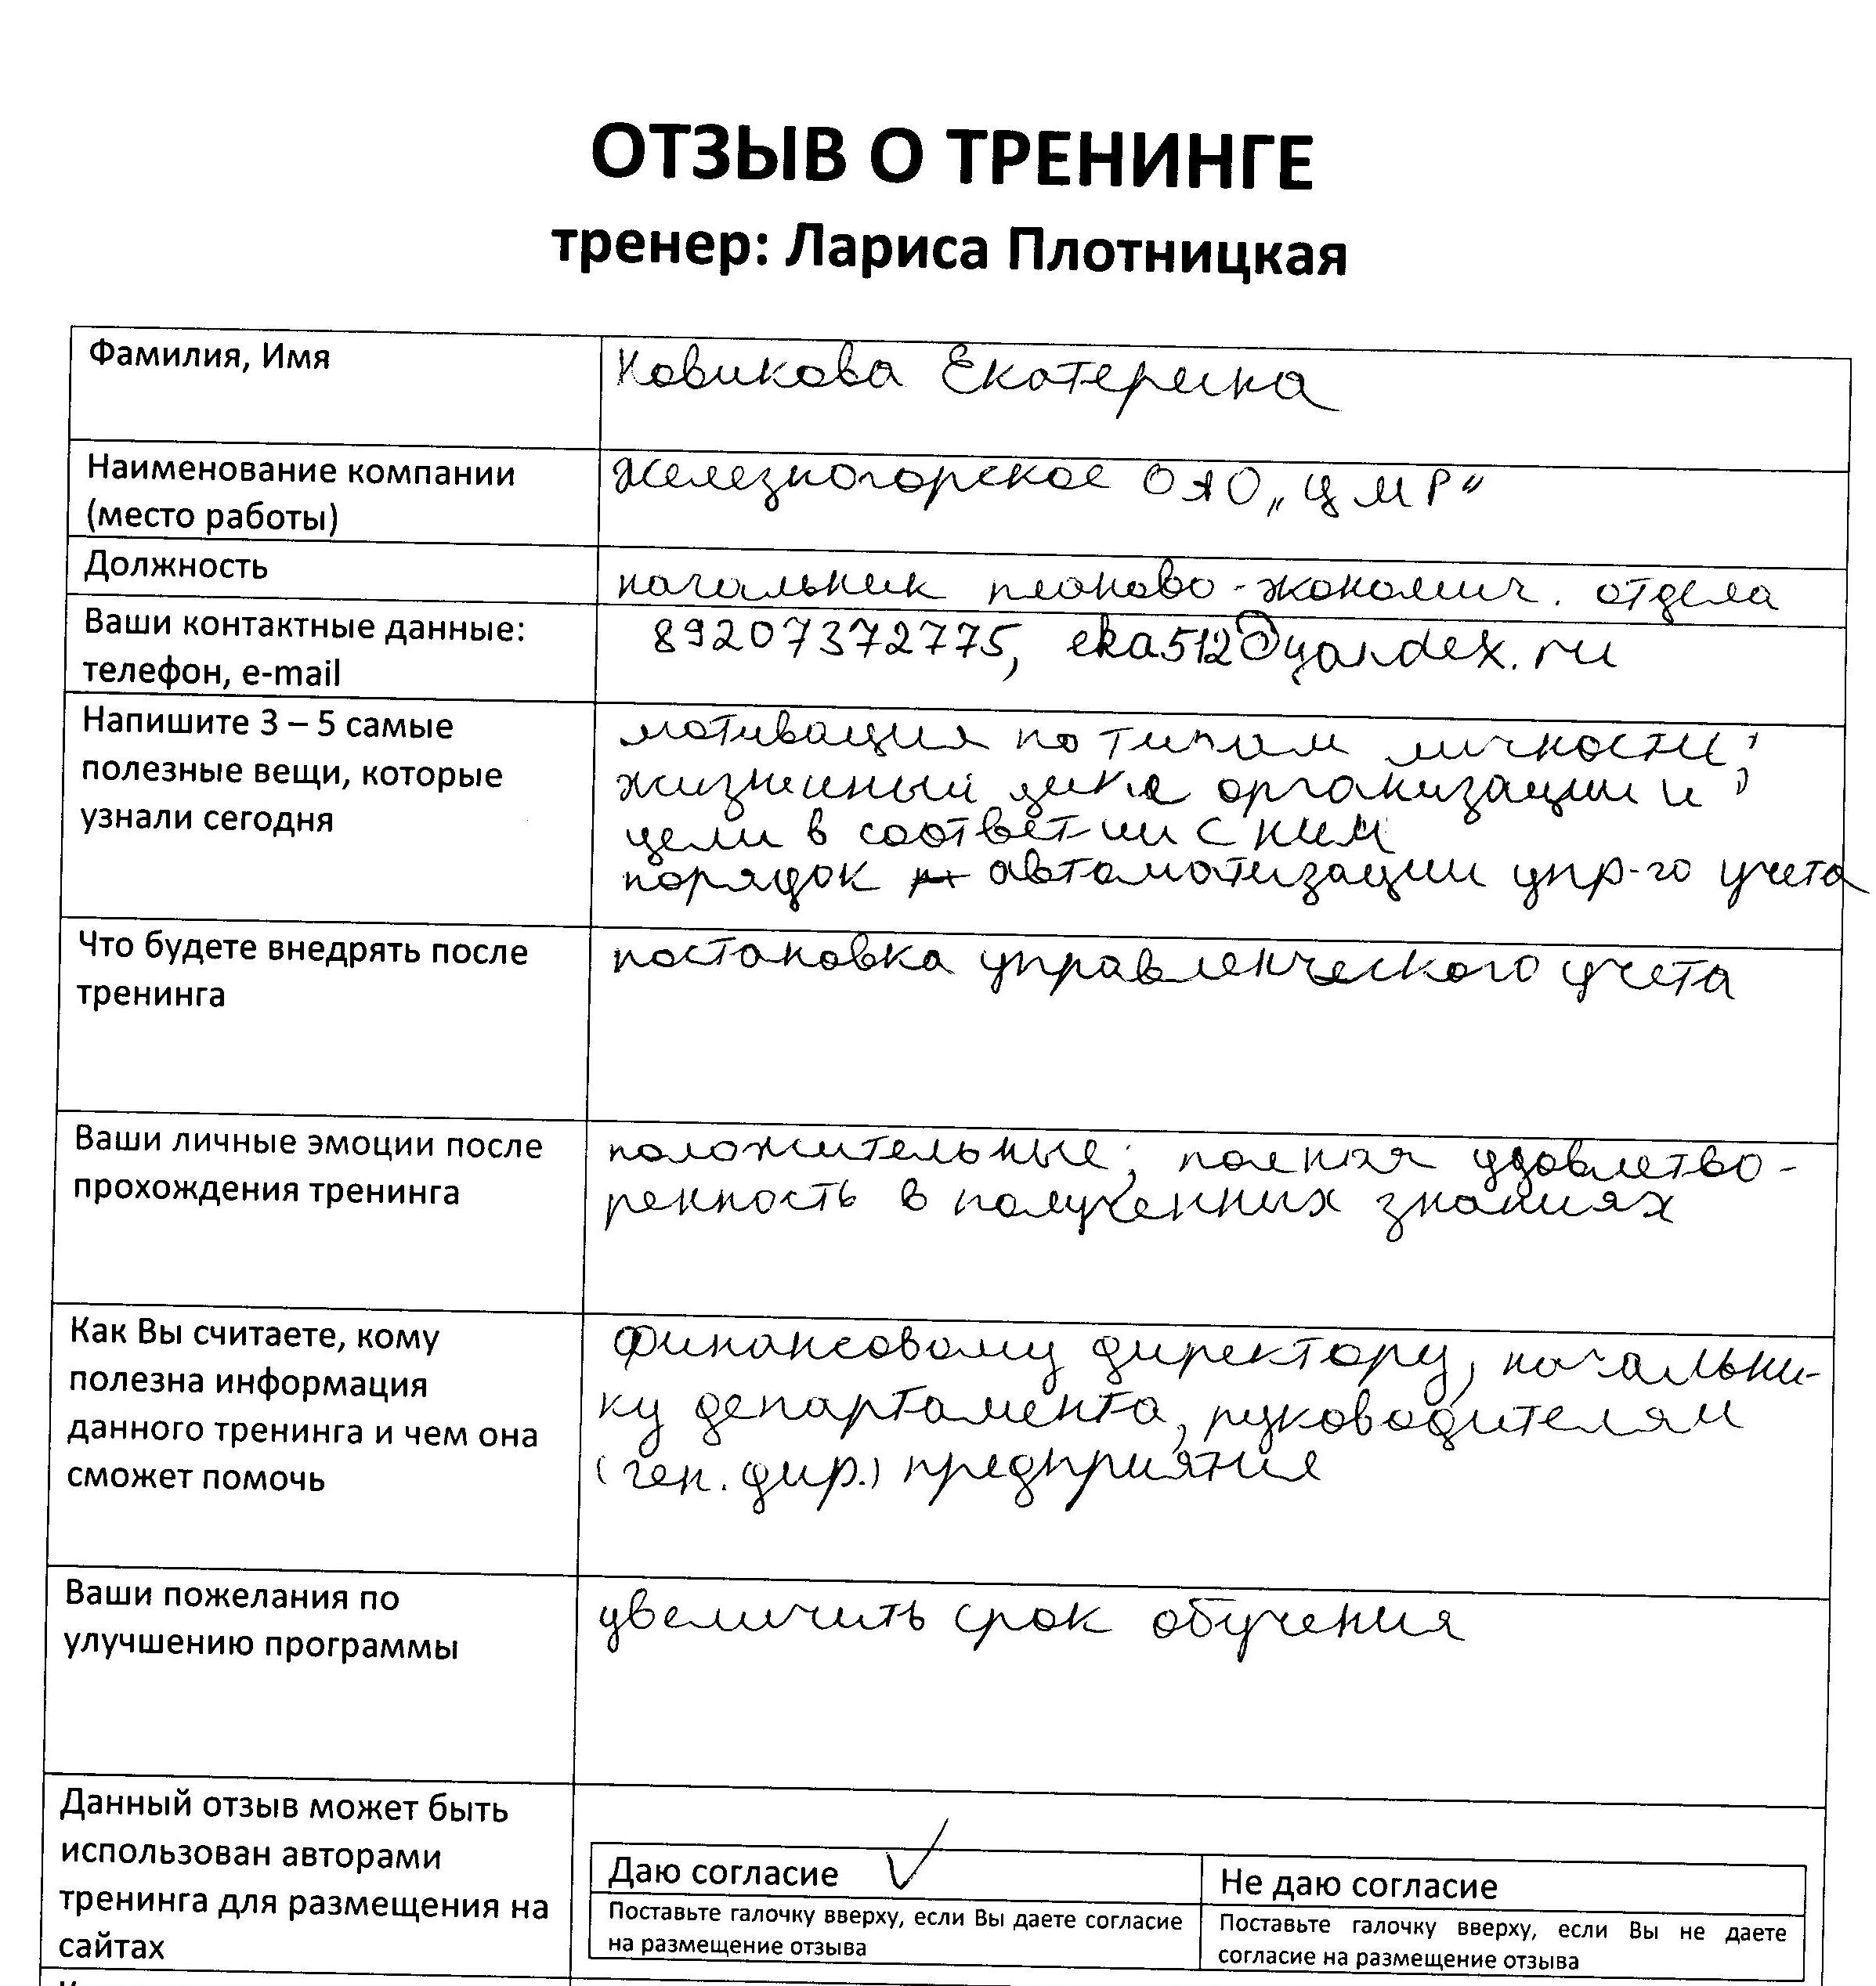 ОТЗЫВ О ТРЕНИНГЕ
тренер: Лариса Плотницкая
Фамилия, Имя
Новикова Екатерина
Наименование компании
(место работы)
Железногорское ОАО „ЦМР“
Должность
начальник планово-экономич. отдела
Ваши контактные данные:
телефон, e-mail
89207372775, eka512@yandex.ru
Напишите 3 – 5 самые
полезные вещи, которые
узнали сегодня
мотивация по типам личности;
жизненный цикл организации и
цели в соответ-ии с ним;
порядок автоматизации упр-го учета
Что будете внедрять после
тренинга
постановка управленческого учета
Ваши личные эмоции после
прохождения тренинга
положительные; полная удовлетво-
ренность в полученных знаниях
Как Вы считаете, кому
полезна информация
данного тренинга и чем она
сможет помочь
финансовому директору, начальни-
ку департамента, руководителям
(ген. дир.) предприятия
Ваши пожелания по
улучшению программы
увеличить срок обучения
Данный отзыв может быть
использован авторами
тренинга для размещения на
сайтах
Даю согласие ✓
Поставьте галочку вверху, если Вы даете согласие
на размещение отзыва
Не даю согласие
Поставьте галочку вверху, если Вы не даете
согласие на размещение отзыва